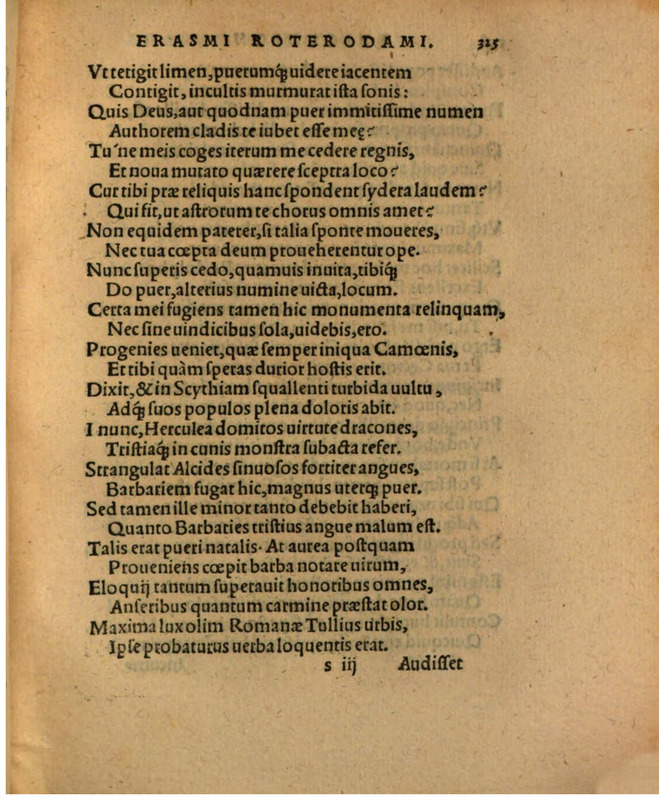 ERASMI ROTERODAMI. 325
Vt tetigit limen, puerumq́; uidere iacentem
Contigit, incultis murmurat ista sonis:
Quis Deus, aut quodnam puer immitissime numen
Authorem cladis te iubet esse meę?
Tu´ne meis coges iterum me cedere regnis,
Et noua mutato quærere sceptra loco?
Cur tibi præ reliquis hanc spondent sydera laudem?
Qui fit, ut astrorum te chorus omnis amet?
Non equidem paterer, si talia sponte moueres,
Nec tua cœpta deum proueherentur ope.
Nunc superis cedo, quamuis inuita, tibiq́;
Do puer, alterius numine uicta, locum.
Certa mei fugiens tamen hic monumenta relinquam,
Nec sine uindicibus sola, uidebis, ero.
Progenies ueniet, quæ semper iniqua Camœnis,
Et tibi quàm speras durior hostis erit.
Dixit, & in Scythiam squallenti turbida uultu,
Adq́; suos populos plena doloris abit.
I nunc, Herculea domitos uirtute dracones,
Tristiaq́; in cunis monstra subacta refer.
Strangulat Alcides sinuosos fortiter angues,
Barbariem fugat hic, magnus uterq; puer.
Sed tamen ille minor tanto debebit haberi,
Quanto Barbaries tristius angue malum est.
Talis erat pueri natalis. At aurea postquam
Proueniens cœpit barba notare uirum,
Eloquij tantum superauit honoribus omnes,
Anseribus quantum carmine præstat olor.
Maxima lux olim Romanæ Tullius urbis,
Ipse probaturus uerba loquentis erat.
s iij Audisset